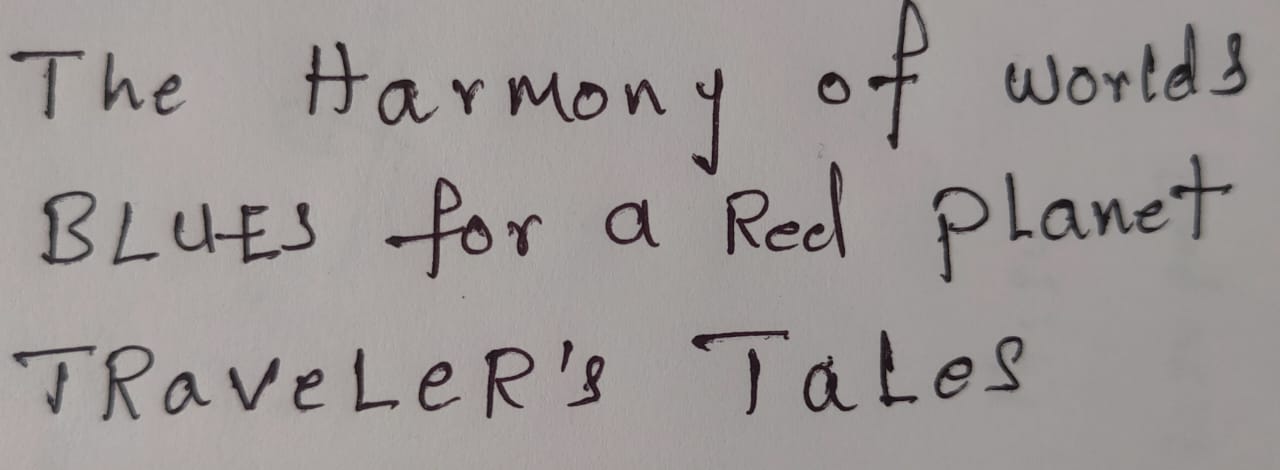 The Harmony of worlds
BLUES for a Red pLanet
TRaveLeR's TaLes